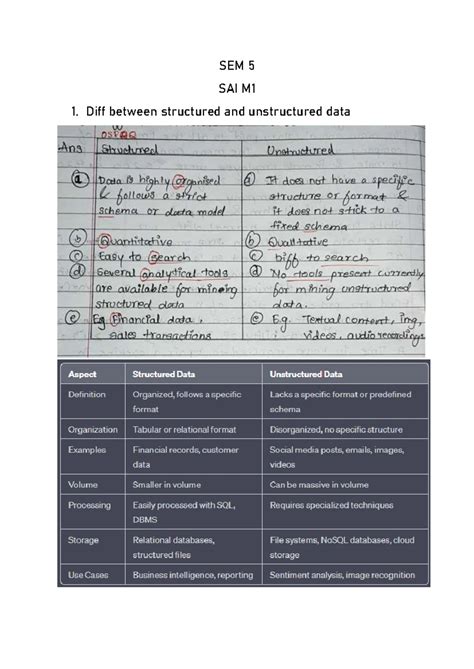 SEM 5
SAI M1
1. Diff between structured and unstructured data
Ans Structured Unstructured
(a) Data is highly organised (a) It does not have a specific
& follows a strict structure or format &
schema or data model it does not stick to a
fixed schema
(b) Quantitative (b) Qualitative
(c) Easy to search (c) diff to search
(d) Several analytical tools (d) No tools present currently
are available for mining for mining unstructured
structured data data.
(e) Eg Financial data, (e) Eg. Textual content, img,
sales transactions videos, audio recordings
Aspect Structured Data Unstructured Data
Definition Organized, follows a specific format Lacks a specific format or predefined schema
Organization Tabular or relational format Disorganized, no specific structure
Examples Financial records, customer data Social media posts, emails, images, videos
Volume Smaller in volume Can be massive in volume
Processing Easily processed with SQL, DBMS Requires specialized techniques
Storage Relational databases, structured files File systems, NoSQL databases, cloud storage
Use Cases Business intelligence, reporting Sentiment analysis, image recognition